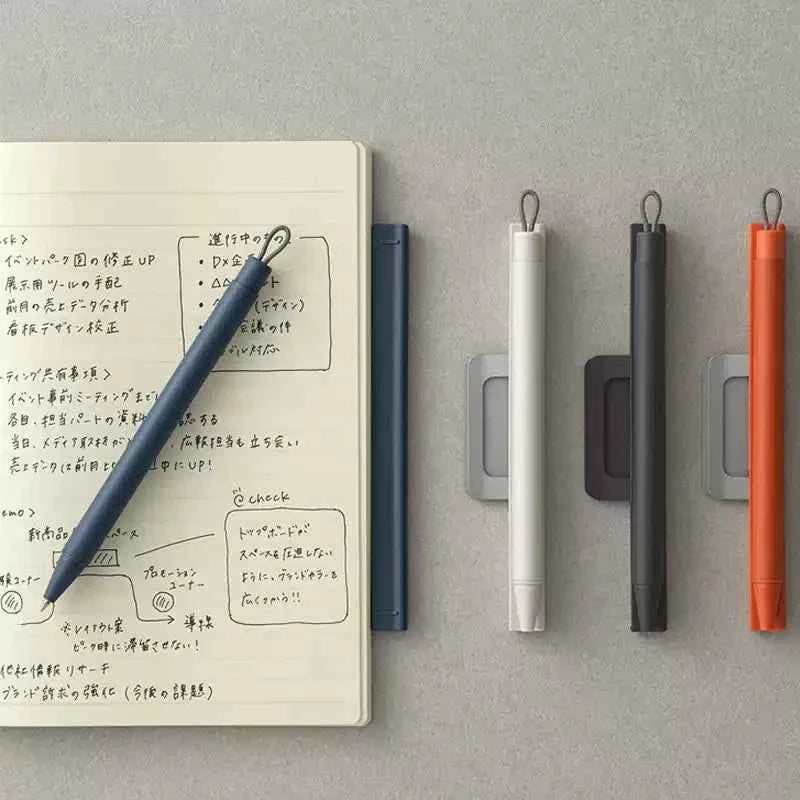 イベントパーク図の修正UP
展示用ツールの手配
前月の売上データ分析
看板デザイン校正
進行中の
• DX企
• △△
(デザイン)
会議の件
対応
ティング共有事項〉
イベント事前ミーティングまでに
各自、担当パートの資料
認する
当日、メディア取材が
、広報担当も立ち会い
売上データは前月
中にUP!
check
トップボードが
スペースを圧迫しない
ように、ブランドカラーを
広くかう!!
emo〉
新商品
ペース
コーナー
プロモーション
コーナー
導線
※レイアウト案
ピーク時に滞留させない!
他社情報リサーチ
ブランド訴求の強化(今後の課題)